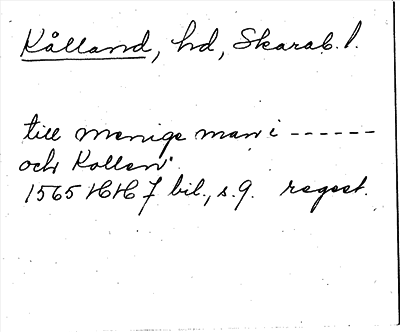 Kålland, hd, Skarab. l.
till menige man i ------
och Kollen.
1565 HH 7 bil., s. 9. regest.